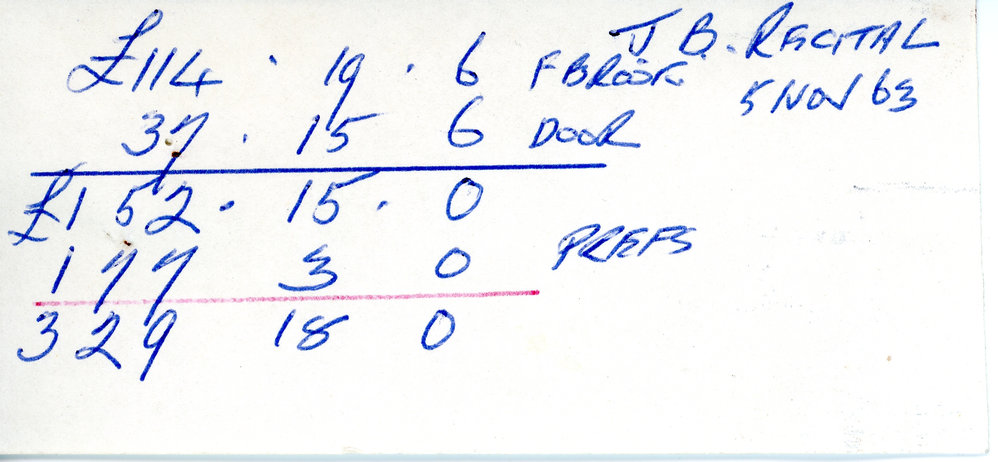 J B. RECITAL
5 NOV 63
£114 . 19 . 6 FBROOK
37 . 15 6 DOOR
£152 . 15 . 0
177 3 0 PREFS
329 18 0